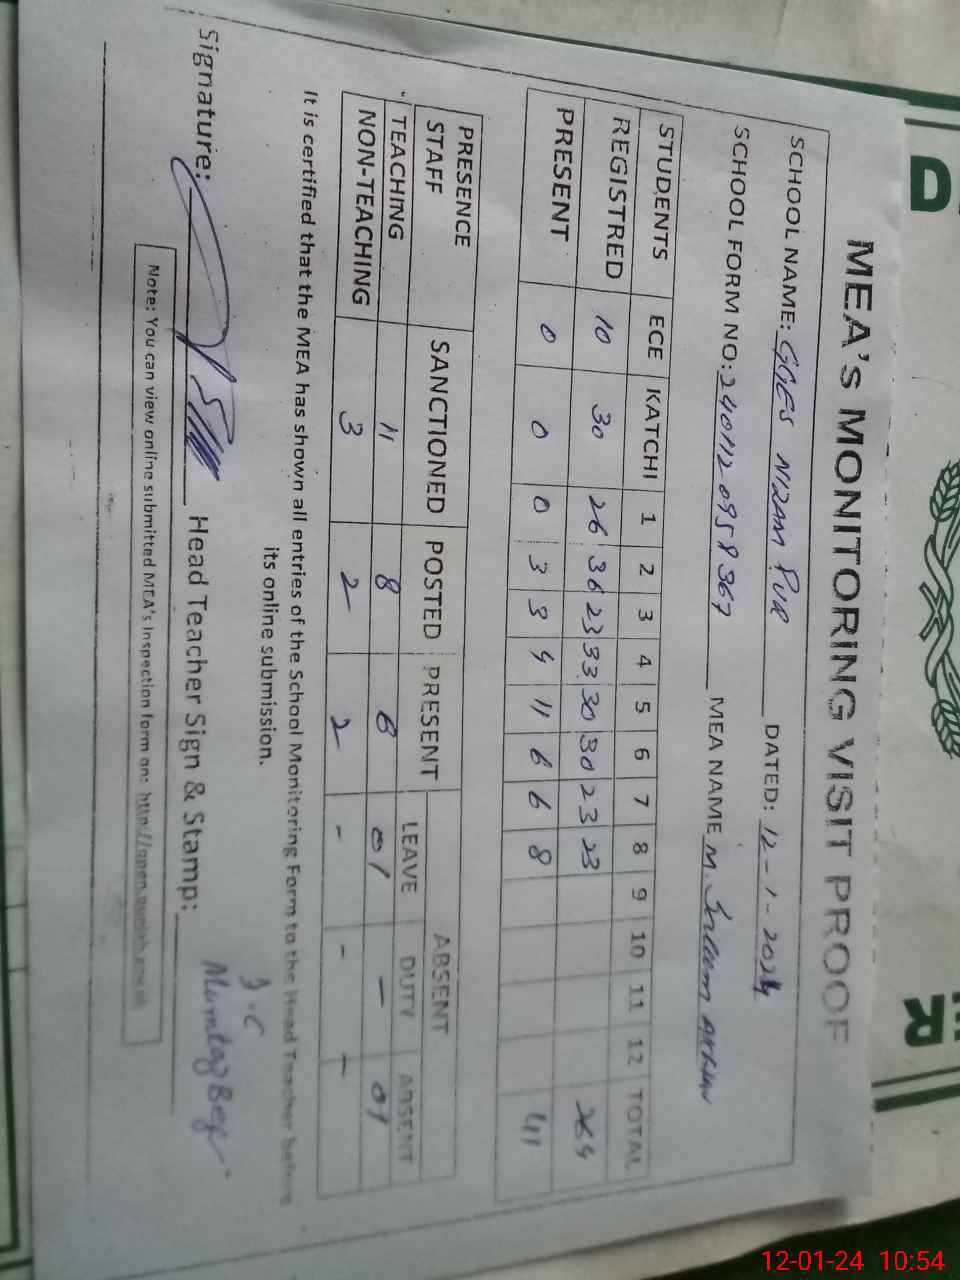 MEA'S MONITORING VISIT PROOF
SCHOOL NAME: GGES NIZAM PUR DATED: 12-1-2024
SCHOOL FORM NO: 2401120958367 MEA NAME M. Akhtar
STUDENTS ECE KATCHI 1 2 3 4 5 6 7 8 9 10 11 12 TOTAL
REGISTRED 10 30 26 36 23 33 30 30 23 23 264
PRESENT 0 0 0 3 3 4 11 6 6 8 41
PRESENCE STAFF SANCTIONED POSTED PRESENT ABSENT
LEAVE DUTY ABSENT
TEACHING 11 8 6 01 - 01
NON-TEACHING 3 2 2 - - -
It is certified that the MEA has shown all entries of the School Monitoring Form to the Head Teacher before
its online submission.
Signature: Head Teacher Sign & Stamp:
Mumtaz Beg
Note: You can view online submitted MEA's Inspection form on:
12-01-24 10:54